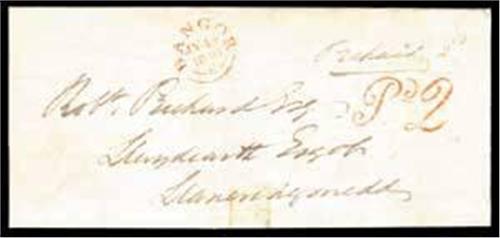 BANGOR
Prepaid
Pd 2
Robt. Prichard Esq
Llwydiarth Esgob
Llanerchymedd